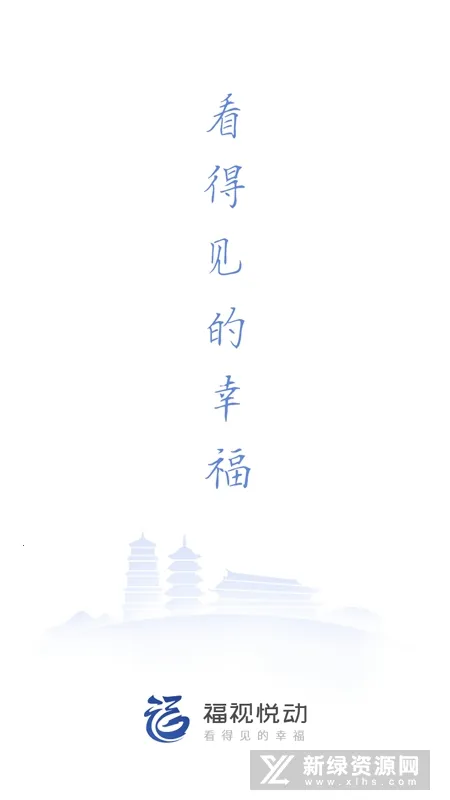 看得见的幸福
福视悦动
看得见的幸福
新绿资源网
www.xlhs.com